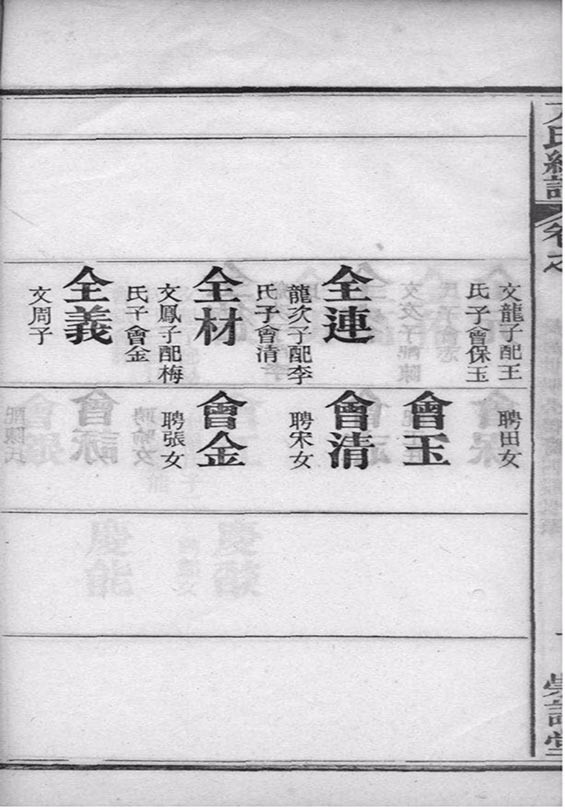 文龍子配王
氏子會保玉
全連
龍次子配李
氏子會清
全材
文鳳子配梅
氏子會金
全義
文周子
聘田女
會玉
會清
聘宋女
會金
聘張女